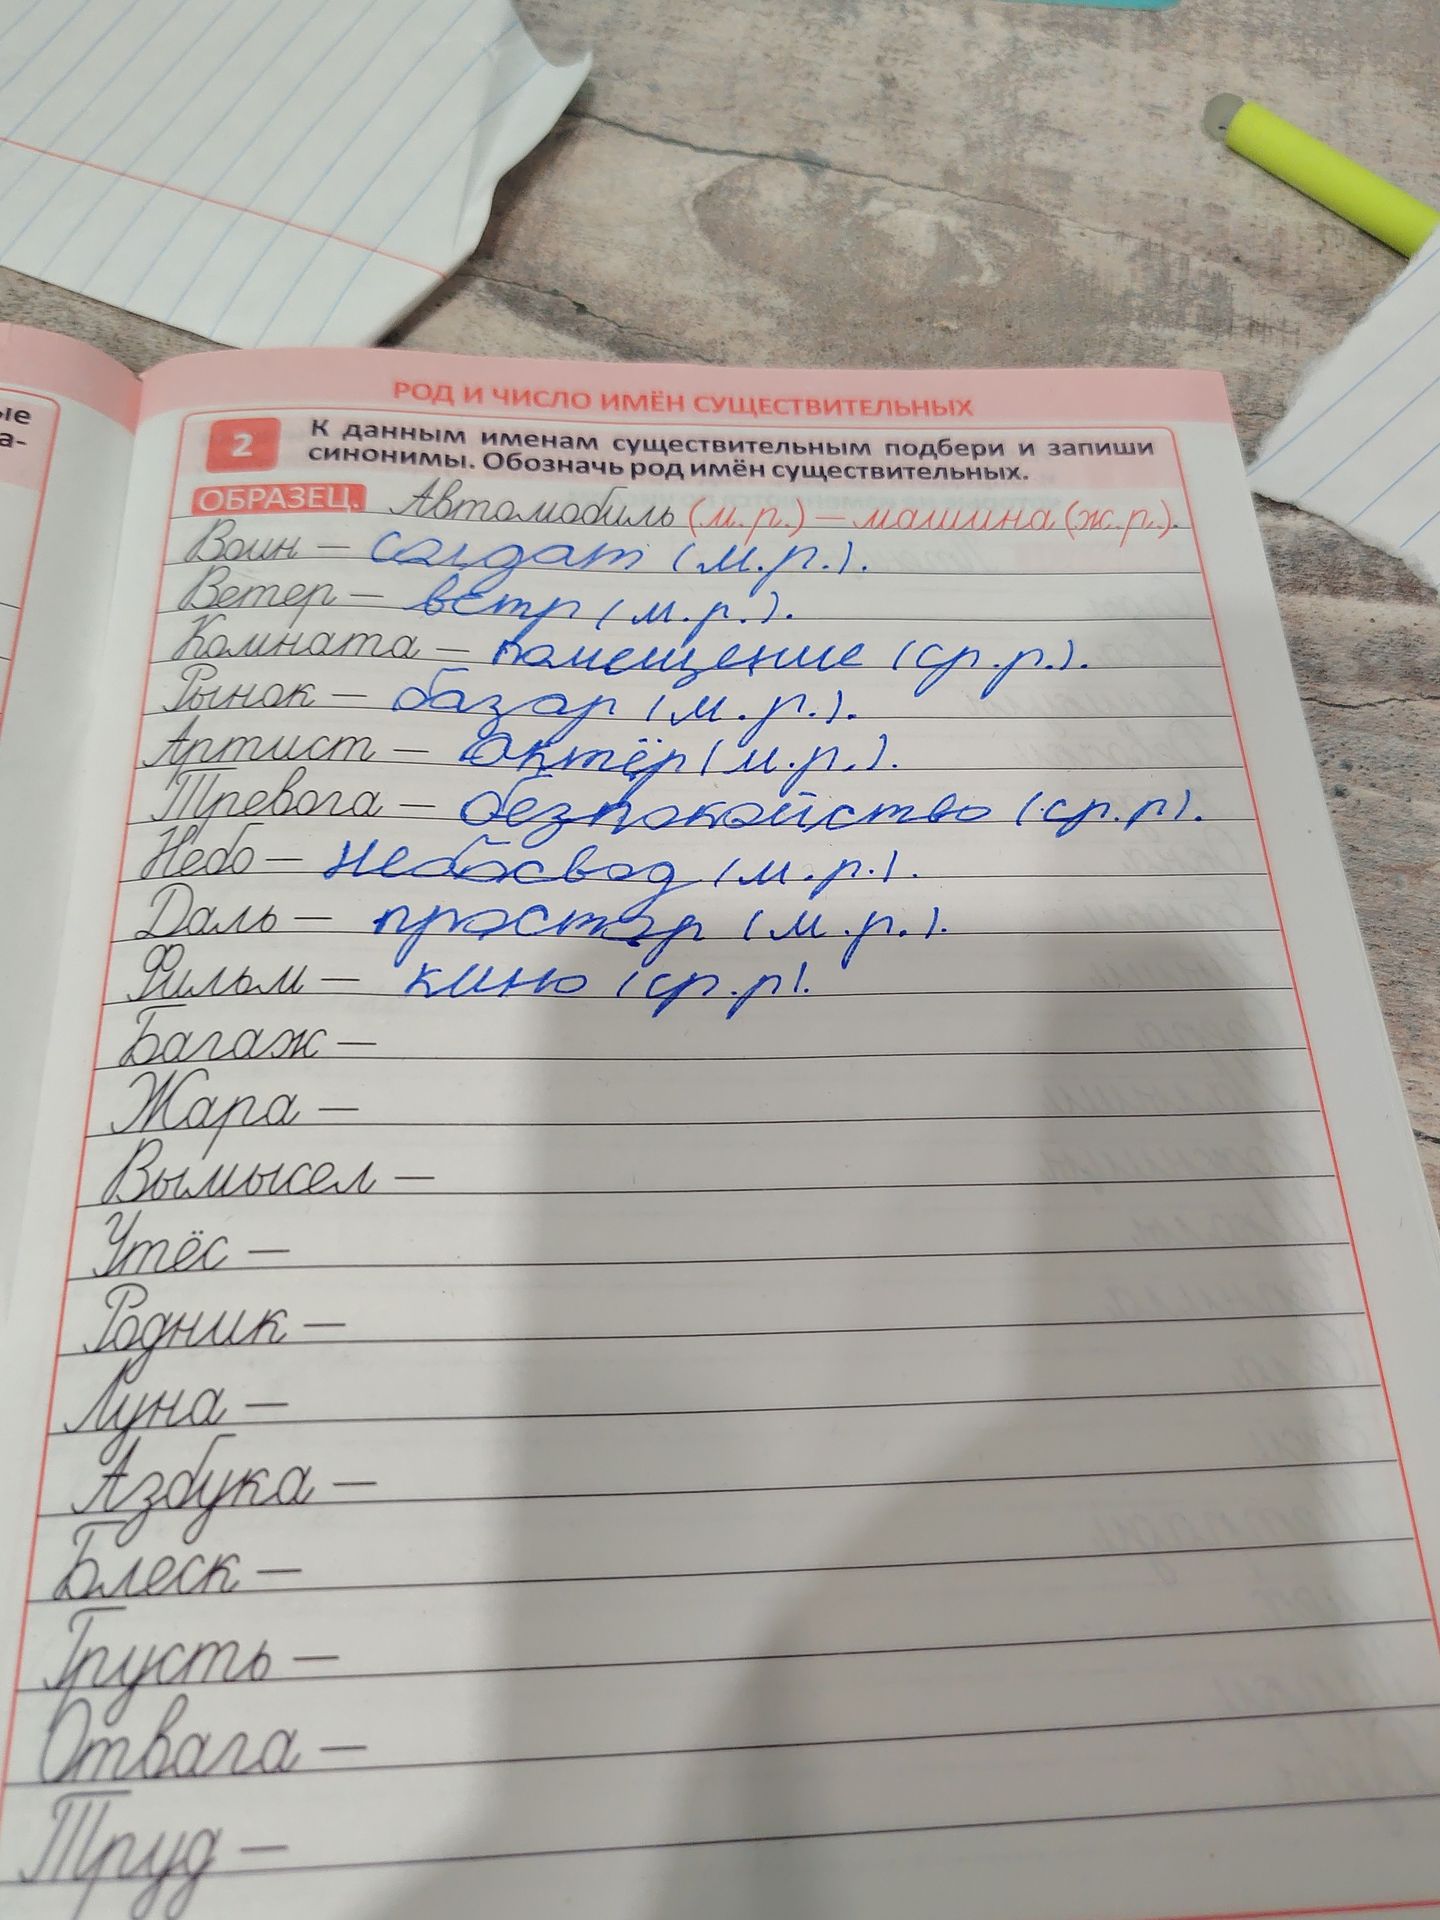 ые
а-
РОД И ЧИСЛО ИМЁН СУЩЕСТВИТЕЛЬНЫХ
2 К данным именам существительным подбери и запиши
синонимы. Обозначь род имён существительных.
ОБРАЗЕЦ. Автомобиль (м.р.) – машина (ж.р.).
Воин – солдат (м.р.).
Ветер – ветр (м.р.).
Комната – помещение (ср.р.).
Рынок – базар (м.р.).
Артист – актёр (м.р.).
Тревога – безпокойство (ср.р).
Небо – небосвод (м.р.).
Даль – простор (м.р.).
Фильм – кино (ср.р).
Багаж –
Жара –
Вымысел –
Утёс –
Родник –
Луна –
Азбука –
Блеск –
Грусть –
Отвага –
Труд –